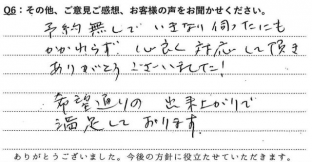 Q6：その他、ご意見ご感想、お客様の声をお聞かせください。
予約無しで いきなり伺ったにも
かかわらず 心良く対応して頂き
ありがとうございました!
希望通りの 出来上がりで
満足しております.
ありがとうございました。今後の方針に役立たせていただきます。